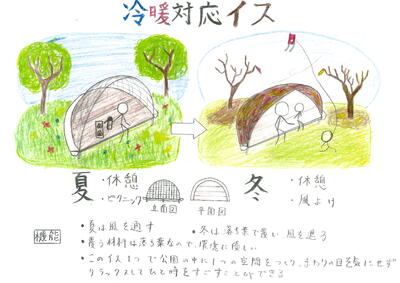 冷暖対応イス
夏 ・休憩 ・ピクニック
立面図 平面図
冬 ・休憩 ・風よけ
機能 ・夏は風を通す ・冬は落ち葉で覆い風を遮る
・覆う材料は落ち葉なので、環境に優しい
・このイス1つで公園の中に1つの空間をつくり、まわりの目を気にせず
リラックスしてひと時をすごすことができる